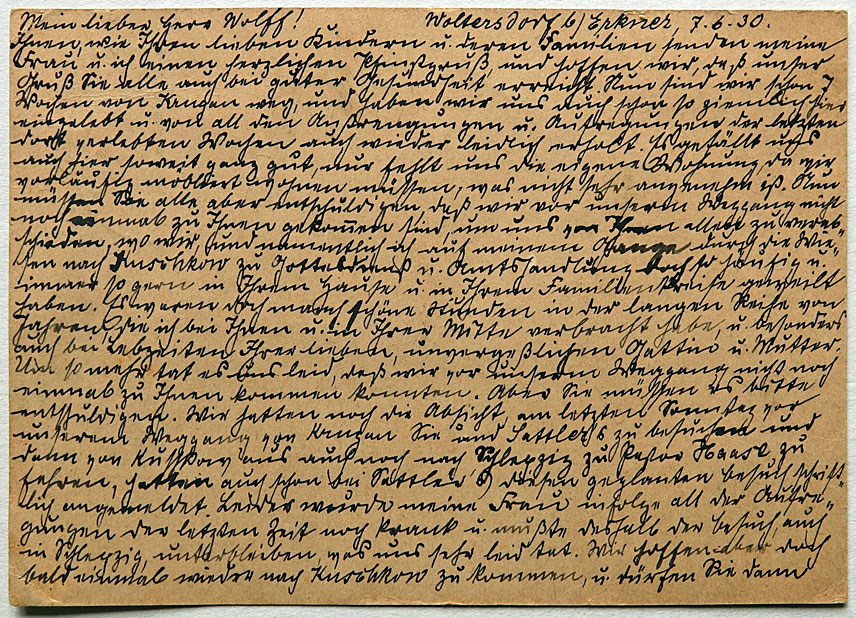 Mein lieber Herr Wolff! Woltersdorf b/ Erkner, 7.6.30.
Ihnen, wie Ihren lieben Kindern u. deren Familien senden meine
Frau u. ich einen herzlichen Pfingstgruß, und hoffen wir, daß unser
Gruß Sie alle auch bei guter Gesundheit erreicht. Nun sind wir schon 7
Wochen von weg, und haben wir uns auch schon so ziemlich hier
eingelebt u. von all den Anstrengungen u. Aufregungen der letzten
dort verlebten Wochen auch wieder leidlich erholt. Es gefällt uns
auch hier soweit ganz gut, nur fehlt uns die eigene Wohnung, da wir
vorläufig möbliert wohnen müssen, was nicht sehr angenehm ist. Nun
müssen Sie alle aber entschuldigen, daß wir vor unserm Weggang nicht
noch einmal zu Ihnen gekommen sind, um uns von Ihnen allen zu verab-
schieden, wo wir, und namentlich ich auf meinem Gange durch die Wie-
sen nach Kuschkow zu Gottesdienst u. Amtshandlung doch so häufig u.
immer so gern in Ihrem Hause u. in Ihrem Familienkreise geweilt
haben. Es waren doch manch schöne Stunden in der langen Reihe von
Jahren, die ich bei Ihnen u. in Ihrer Mitte verbracht habe, u. besonders
auch bei Lebzeiten Ihrer lieben, unvergeßlichen Gattin u. Mutter.
Um so mehr tat es uns leid, daß wir vor unserm Weggang nicht noch
einmal zu Ihnen kommen konnten. Aber Sie müssen es bitte
entschuldigen. Wir hatten noch die Absicht, am letzten Sonntag vor
unserem Weggang von Sie und Sattler's zu besuchen und
dann von Kuschkow aus auch noch nach Schlepzig zu Pastor Haase zu
fahren, hatten auch schon bei Sattler's diesen geplanten Besuch schrift-
lich angemeldet. Leider wurde meine Frau infolge all der Aufre-
gungen der letzten Zeit noch krank u. mußte deshalb der Besuch, auch
in Schlepzig, unterbleiben, was uns sehr leid tat. Wir hoffen aber doch
bald einmal wieder nach Kuschkow zu kommen, u. dürfen Sie dann